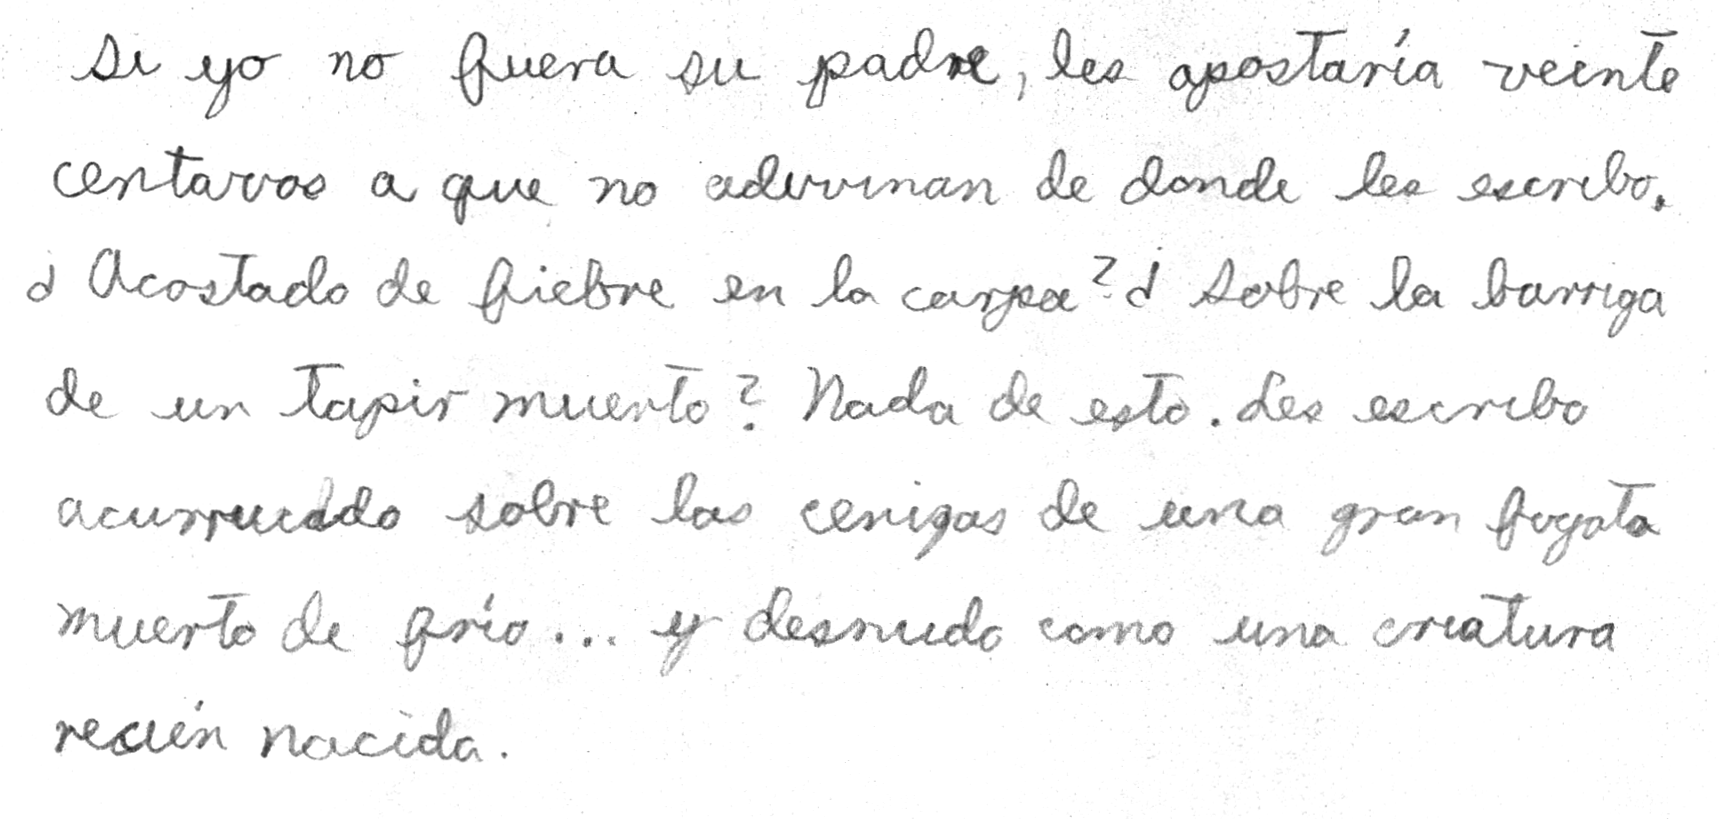 Si yo no fuera su padre, les apostaría veinte
centavos a que no adivinan de donde les escribo.
¿Acostado de fiebre en la carpa? ¿Sobre la barriga
de un tapir muerto? Nada de esto. Les escribo
acurrucado sobre las cenizas de una gran fogata
muerto de frío... y desnudo como una criatura
recién nacida.